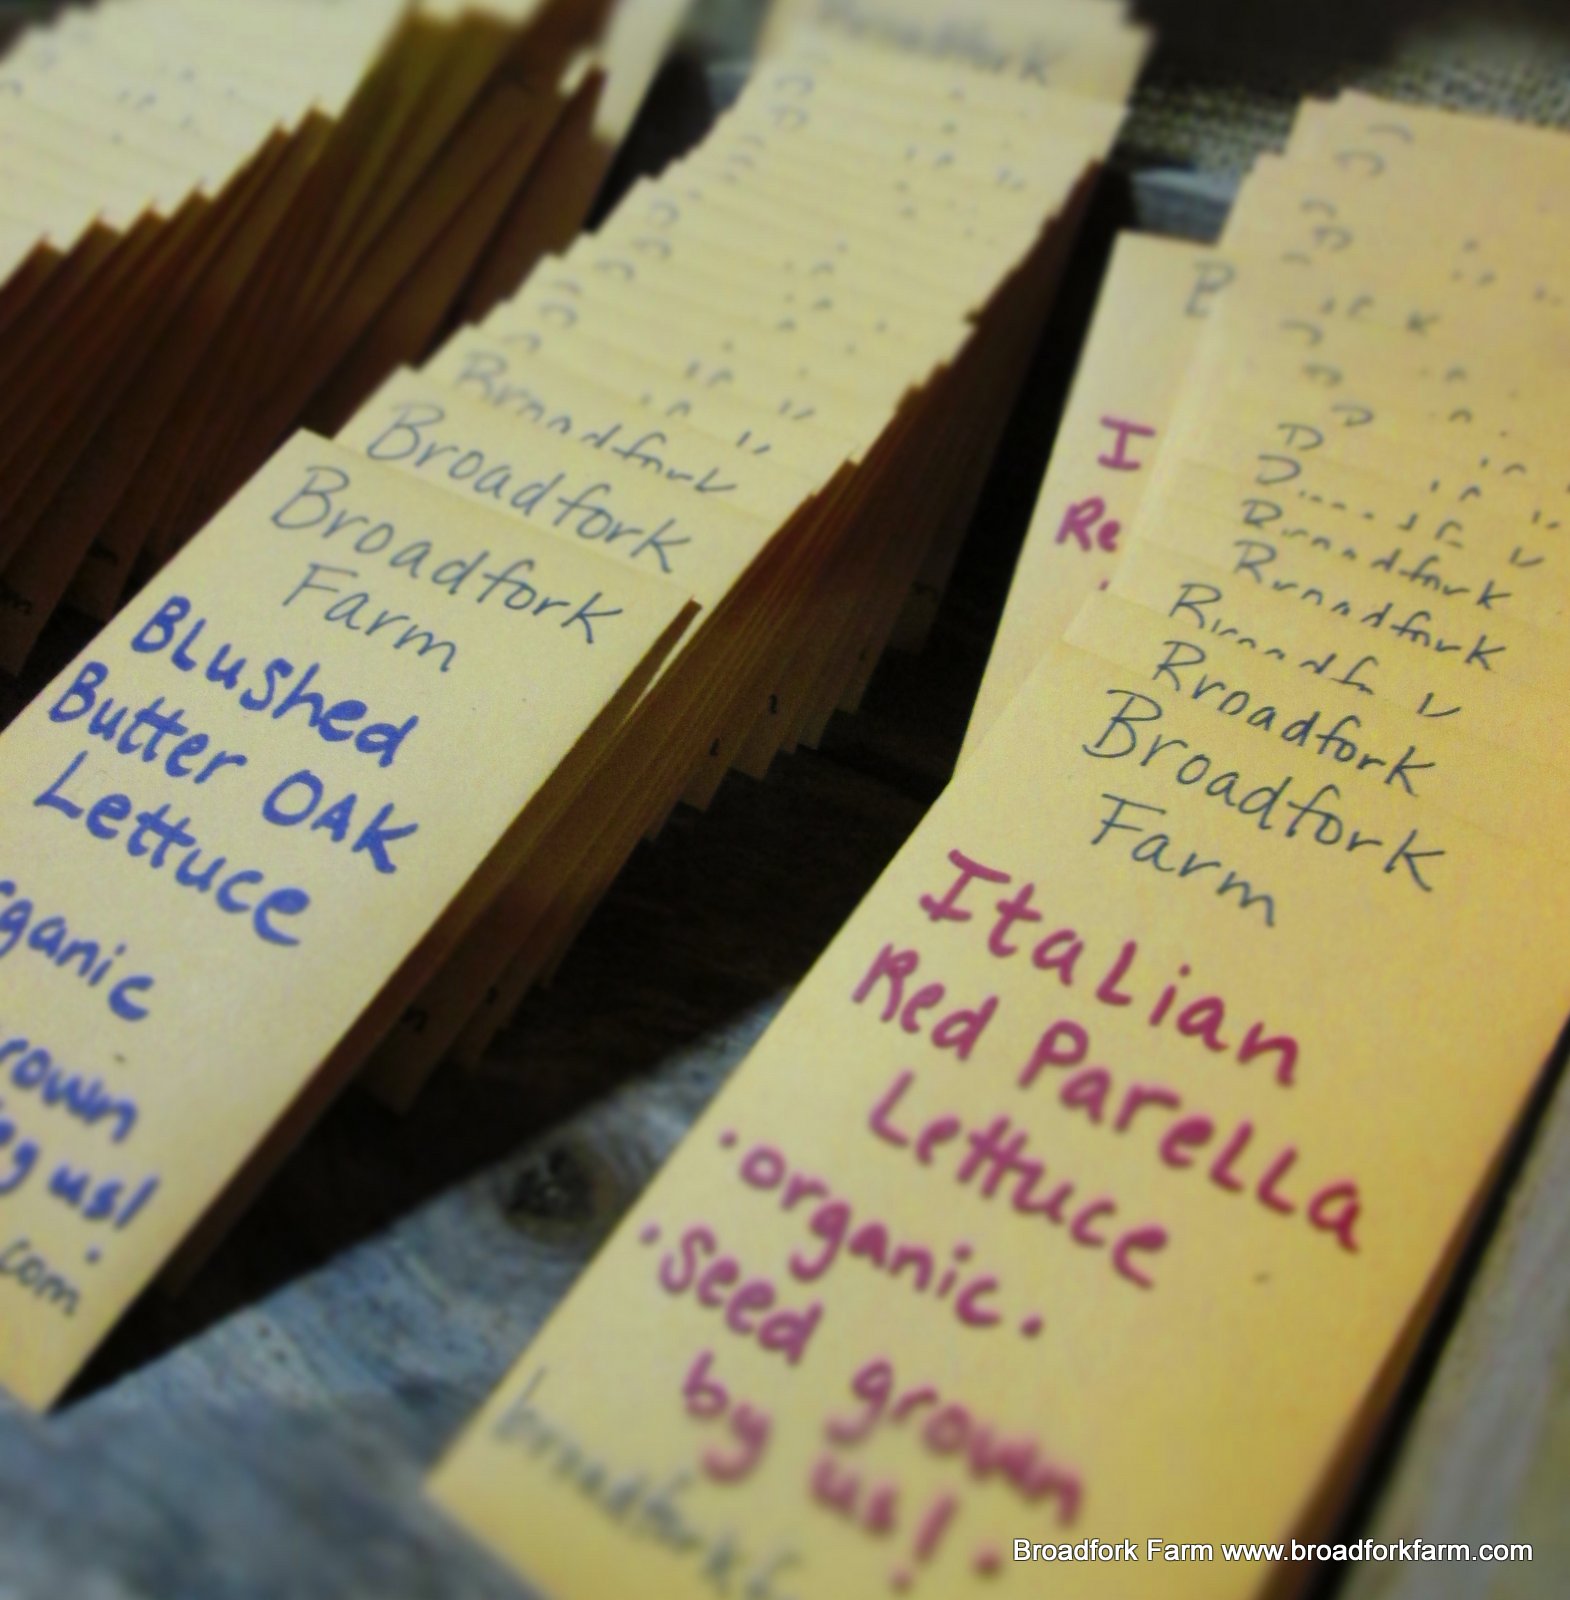 Broadfork
Broadfork
Farm
BLushed
Butter OAK
Lettuce
organic
grown
by us!
.com
I
Re
Broadfork
Broadfork
Broadfork
Broadfork
Farm
ItaLian
Red PareLLa
Lettuce
·organic·
·Seed grown
by us!·
Broadfork Farm www.broadforkfarm.com